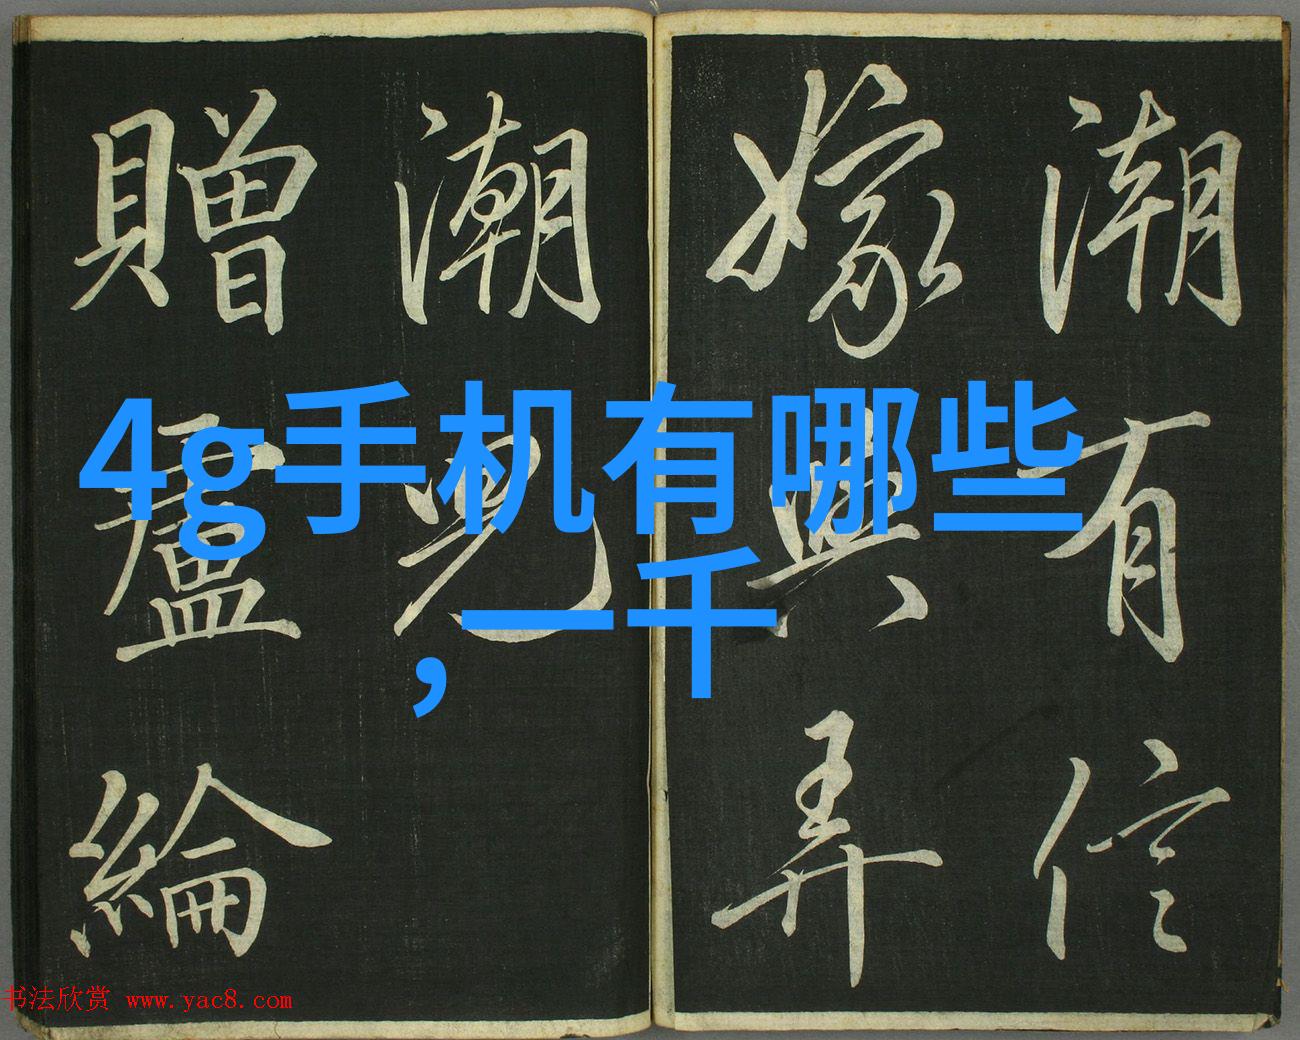 潮有信
嫁與弄
潮兒
贈盧綸
4g手机有哪些
，一千
书法欣赏 www.yac8.com